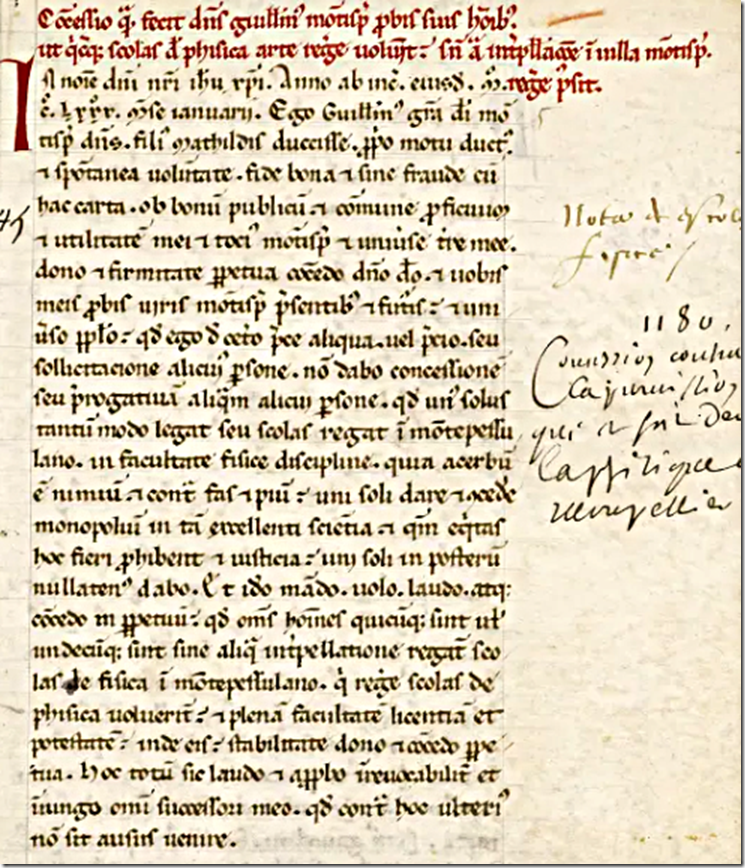 Cōcessio q̄. fecit dn̄s guill'm' mōtisp̄. p̱bis suis hōib;.
ut q̇cq; scolas d̄ phisica arte rege' uolūt'. sn̄ ā int'pll'acōe ī uilla mōtisp̄.
In noīe dn̄i nr̄i ihū xp̄i. Anno ab inc̄. eiusd. M̊. rege' p̄sit.
c̊. Lxxx. m̄se ianuarii. Ego Guill'm' gr̄a dī mō
tisp̄ dn̄s. fili' mathildis duccisse. p̱p̱o motu duct'.
⁊ spōtanea volūtate. fide bona ⁊ sine fraude cū
hac carta. ob bonū publicū ⁊ cōmune p̱ficuum
⁊ utilitatē mei ⁊ toci' mōtisp̄ ⁊ uniu'se t're mee.
dono ⁊ firmitate p̱petua cōcedo dn̄o dō. ⁊ uobis
meis p̱bis uiris mōtisp̄ p̄sentib; ⁊ fut'is. ⁊ uni
u'so pp̱lo. qd̄ ego d̄ cet'o p̄ce aliqua. uel p̄cio. seu
sollicitacione alicui' p̱sone. nō dabo concessionē
seu p̄rogatiuā aliq̄m alicui p̱sone. qd̄ un' solus
tantūmodo legat seu scolas regat ī mōtepessu
lano. in facultate fisice discipline. quia acerbū
ē nimiū ⁊ cont' fas ⁊ piū. uni soli dare ⁊ cōcede'
monopoliū in tā excellenti sciētia ⁊ qm̄ eq̇tas
hoc fieri p̱hibent ⁊ iusticia. uni soli in posterū
nullaten' dabo. Et idō mādo. uolo. laudo. atq;
cōcedo in p̱petuū. qd̄ om̄s hoīnes quicūq; sint ul'
undecūq; sint sine aliq̇ int'pellatione regāt sco
las de fisica ī mōtepessulano. q̇ rege' scolas de
phisica uoluerīt. ⁊ plenā facultatē licentiā et
potestatē. inde eis. stabilitate dono ⁊ cōcedo p̱pe
tua. Hoc totū sic laudo ⁊ app̱bo irreuocabilit' et
iniungo om̄i successori meo. qd̄ cont' hoc ulteri'
nō sit ausus uenire.
45
1180.